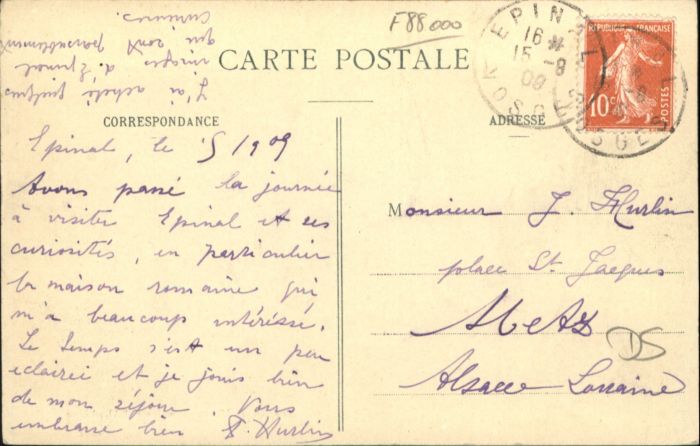 F88000
CARTE POSTALE
CORRESPONDANCE
ADRESSE
J'ai acheté quelques
images d'Epinal
qui sont
curieuses.
Epinal, le 15/109
Avons passé la journée
à visiter Epinal et ses
curiosités, en particulier
la maison romaine qui
m'a beaucoup intéréssé.
Le temps s'est un peu
eclairci et je jouis bien
de mon séjour. Vous
embrasse bien Hurlin
REPUBLIQUE FRANÇAISE
10c
POSTES
EPINAL
16
15 -8
09
VOSGES
Monsieur J. Hurlin
place St. Jacques
Metz
Alsace Lorraine
DS